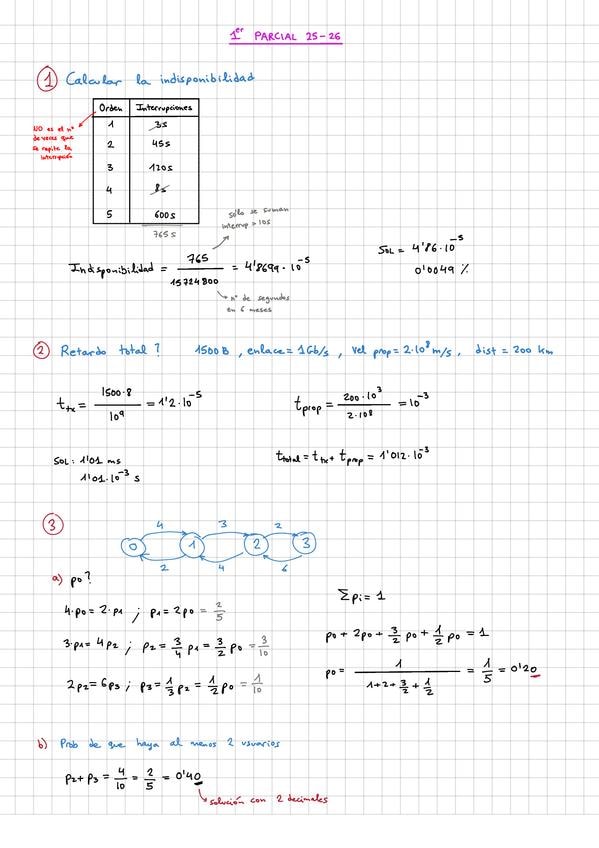 1er PARCIAL 25-26
① Calcular la indisponibilidad
Orden Interrupciones
1 3s
2 45s
3 120s
4 8s
5 600s
765 s
NO es el nº
de veces que
se repite la
interrupción
sólo se suman
interrup > 10s
Indisponibilidad = 765 / 15724800 = 4'8699·10^-5
nº de segundos
en 6 meses
SOL = 4'86·10^-5
0'0049 %
② Retardo total? 1500B, enlace = 1Gb/s, Vel prop = 2·10^8 m/s, dist = 200 km
t_tx = 1500·8 / 10^9 = 1'2·10^-5
t_prop = 200·10^3 / 2·10^8 = 10^-3
SOL: 1'01 ms
1'01·10^-3 s
t_total = t_tx + t_prop = 1'012·10^-3
③
4 3 2
0 1 2 3
2 4 6
a) p0?
4·p0 = 2·p1 ; p1 = 2p0 = 2/5
3·p1 = 4p2 ; p2 = 3/4 p1 = 3/2 p0 = 3/10
2p2 = 6p3 ; p3 = 1/3 p2 = 1/2 p0 = 1/10
∑pi = 1
p0 + 2p0 + 3/2 p0 + 1/2 p0 = 1
p0 = 1 / 1+2+3/2+1/2 = 1/5 = 0'20
b) Prob de que haya al menos 2 usuarios
p2 + p3 = 4/10 = 2/5 = 0'40
solución con 2 decimales